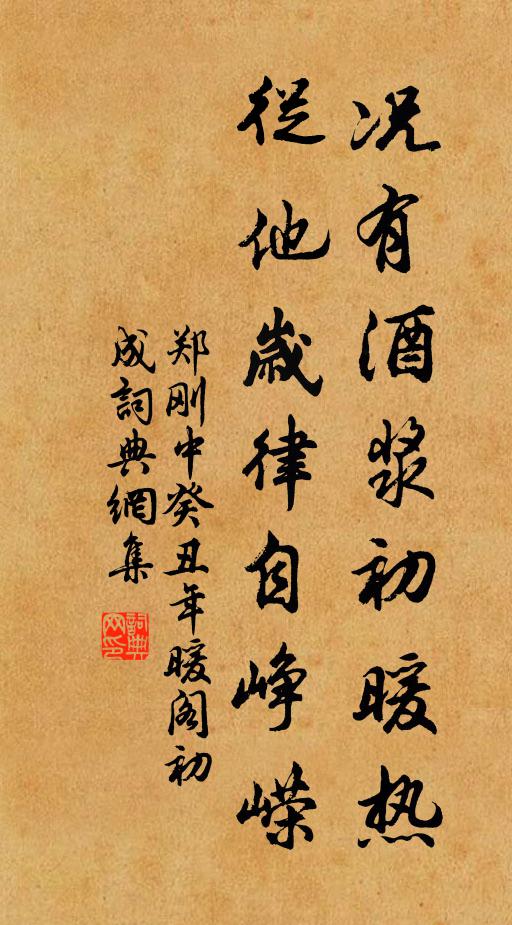 况有酒漿初暖热
從他歲律自峥嶸
郑刚中癸丑年暖阁初
成詞典網集
詞典网印